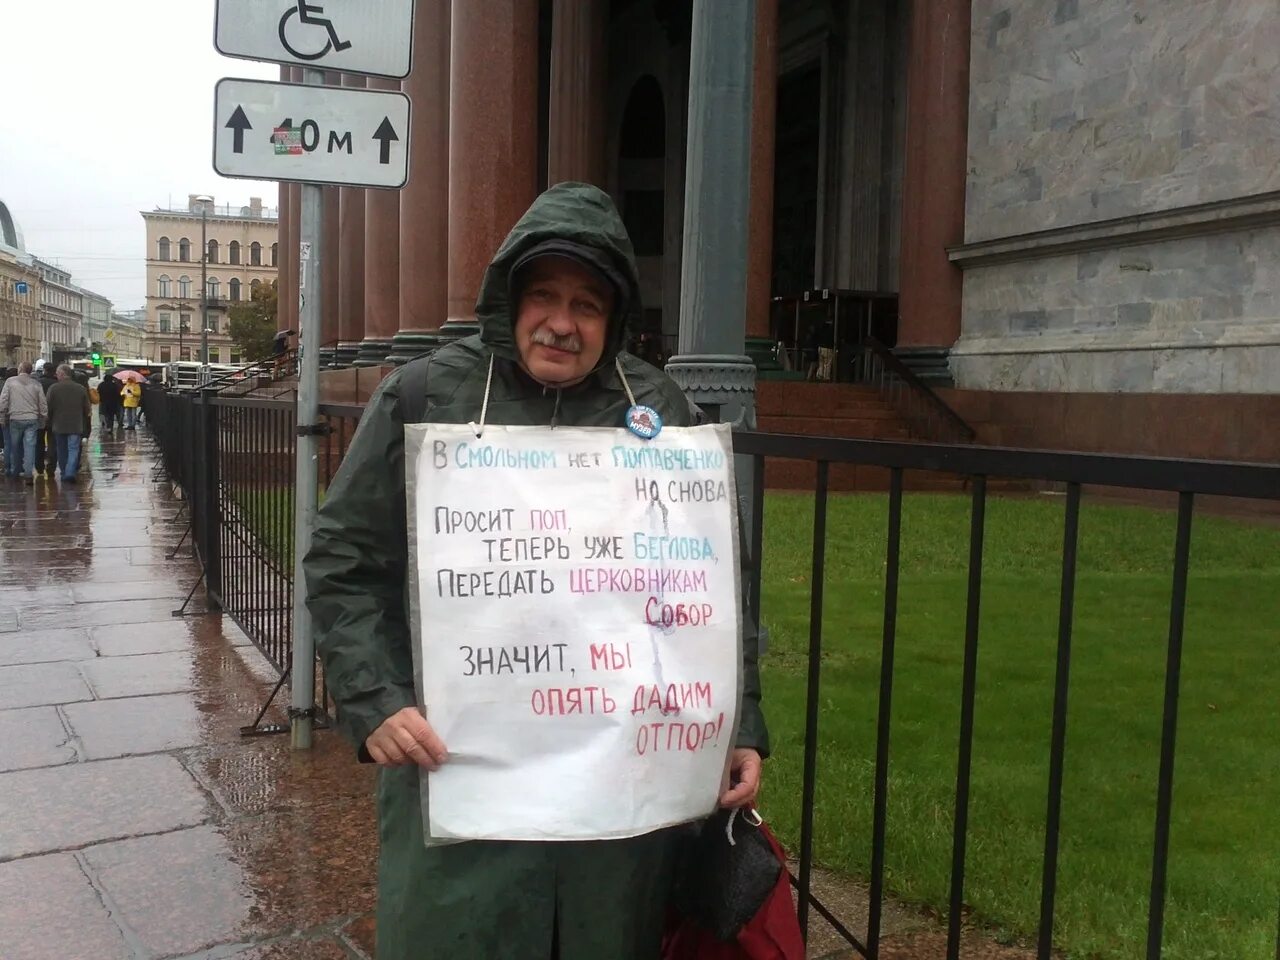 10 м
В Смольном нет Полтавченко
но снова
Просит поп,
теперь уже Беглова,
Передать церковникам
Собор
значит, мы
опять дадим
отпор!
музей